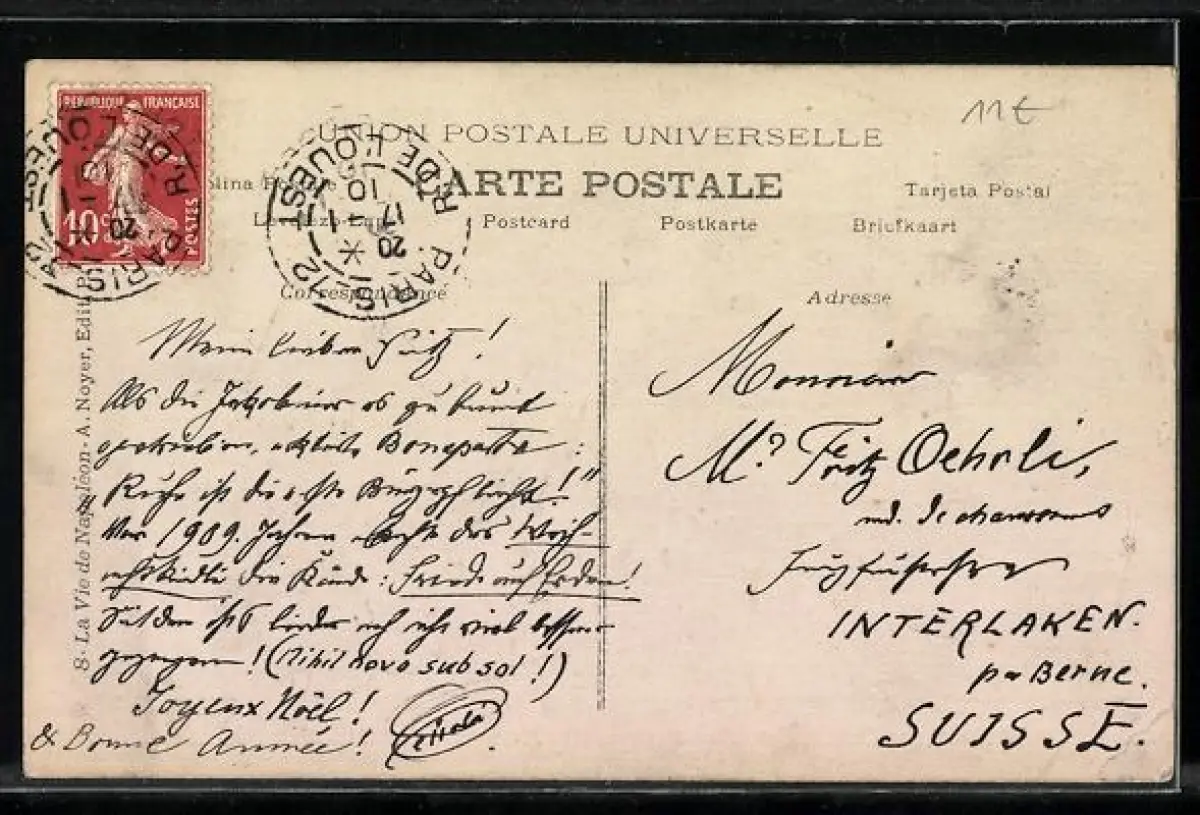 11€
RÉPUBLIQUE FRANÇAISE
10c
POSTES
PARIS 12 R. DE L'OUEST
17 20
UNION POSTALE UNIVERSELLE
CARTE POSTALE
Tarjeta Postal
Postcard Postkarte Briefkaart
Correspondance
Adresse
8 - La Vie de Napoléon - A. Noyer, Edit. P
Mein lieber Fritz!
Als die Jakobiner es zu bunt
getrieben, erklärte Bonaparte:
Ruhe ist die erste Bürgerpflicht!"
Vor 1909 Jahren das Weih-
die Kunde: Friede auf Erden!
Seitdem ist's leider viel besser
gegangen! (Nihil novo sub sol!)
Joyeux Noël!
& Bonne Année!
Monsieur
Mr Fritz Oehrli,
Jungfraustrasse
INTERLAKEN.
Berne.
SUISSE.